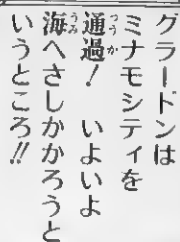 グラードンは
ミナモシティを
通過！　いよいよ
海へさしかかろうと
いうところ!!